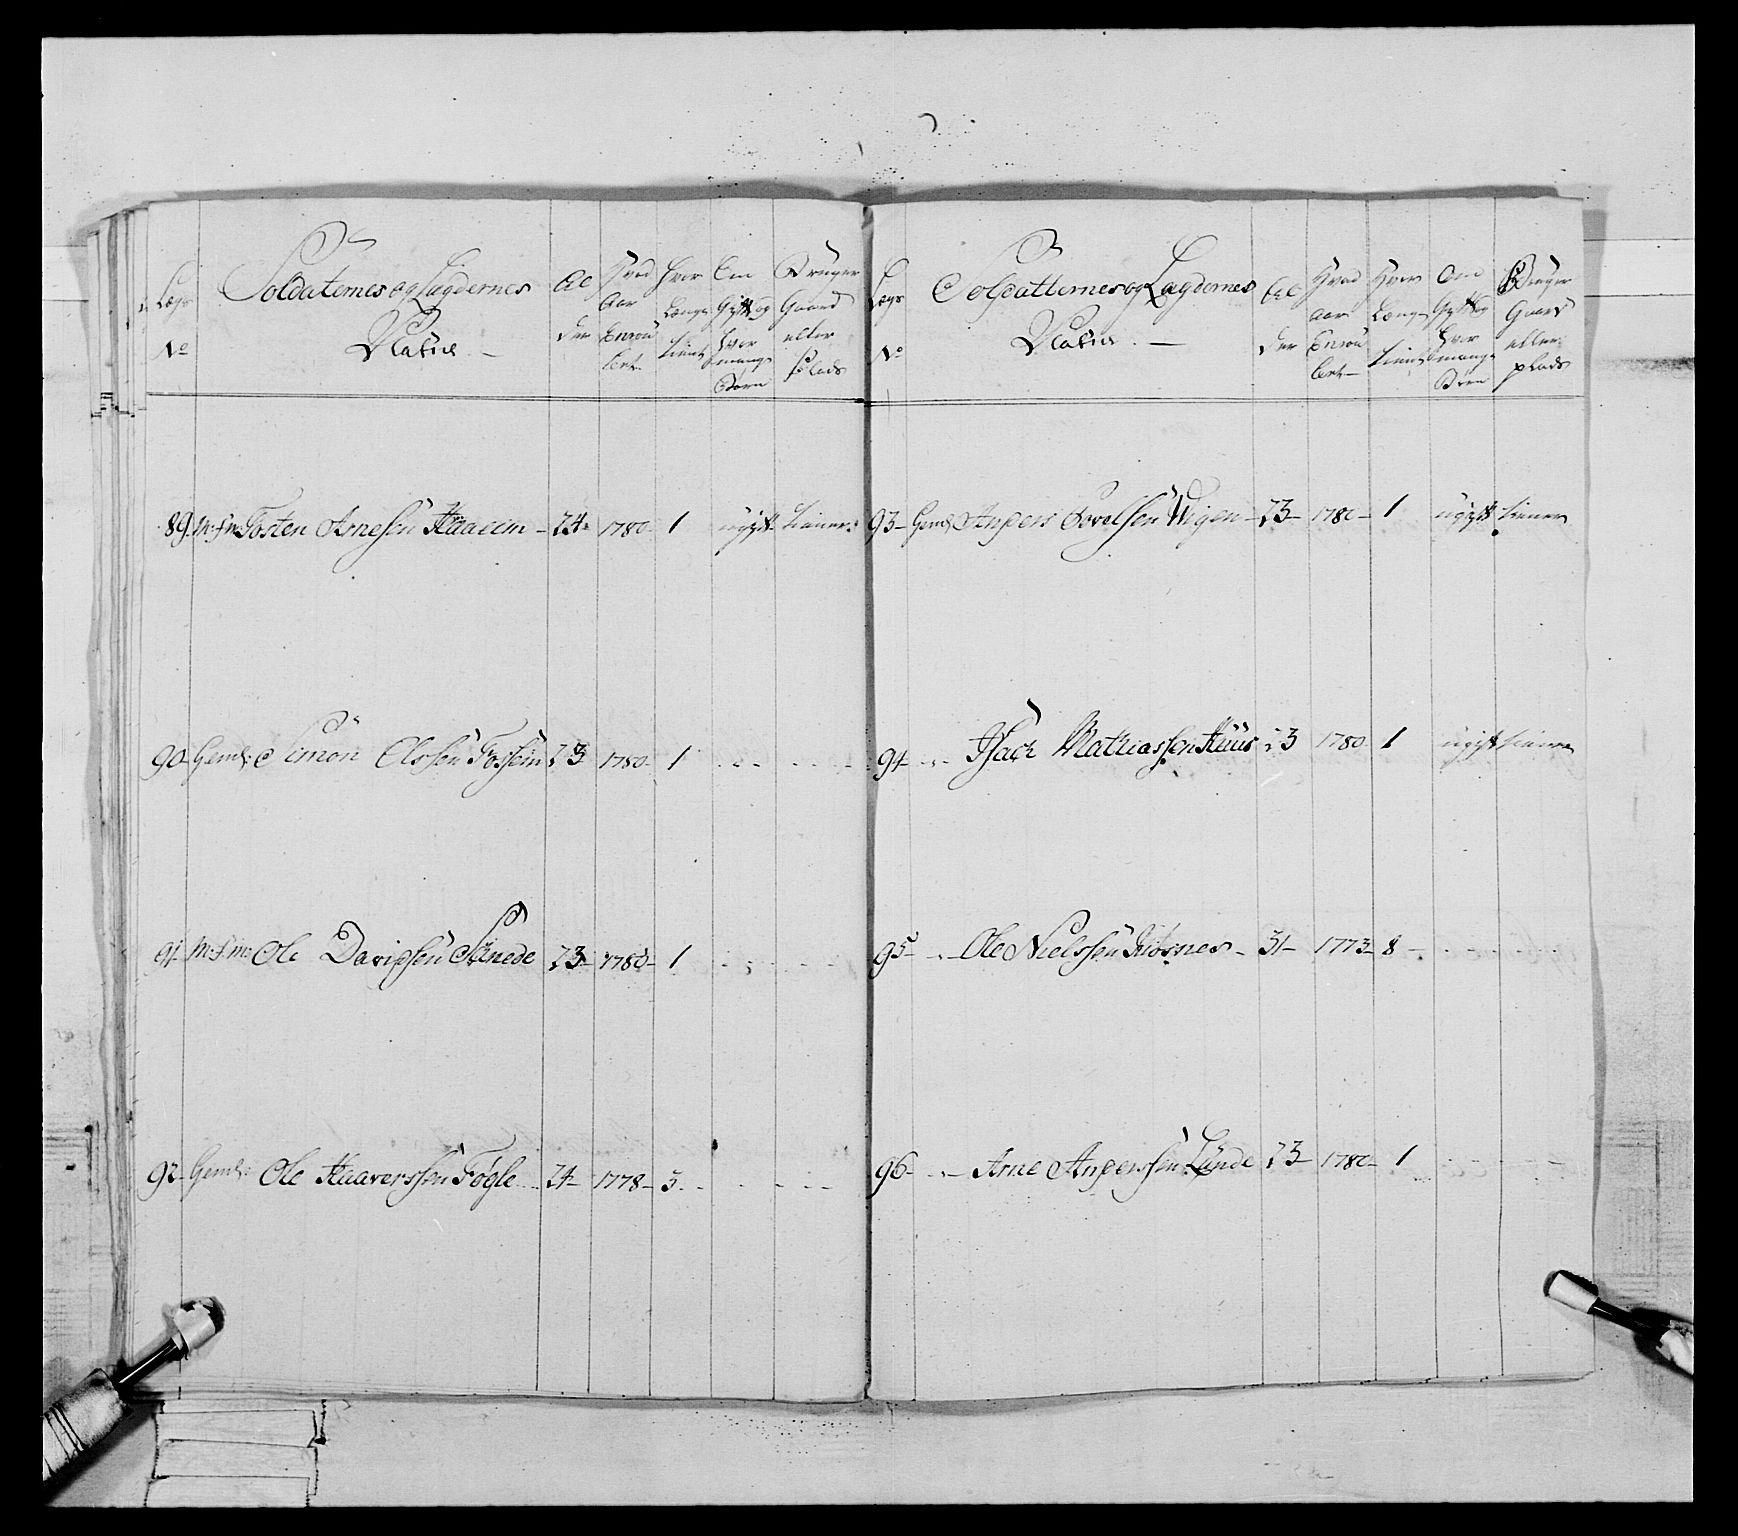 Lægs No
Soldaternes og Lægdernes Natiel. —
Al der
Hvad Aar Enrou leret
Hvor Længe tient
Om Gift og hvor mange Børn
Bruger Gaard eller plads
89. M: f: m: Tosten Arnesen Haaeim — 24 — 1780. 1 ugift tiener.
90. Geml: Simon Olsen Fossem 23 1780 1 - - - -
91. M: f: m: Ole Davidsen 23 — 1780 — 1 - - - -
92. Geml: Ole Haaverssen Fogle — 24 — 1778 — 3. - - - -
Lægs No
Soldatternes og Lægdernes Natiel. —
Al der
Hvad Aar Enrou leret —
Hvor Længe tient
Om Gift og hvor mange Børn
Bruger Gaard eller plads
93 — Geml Anders Povelsen Wigen — 23 — 1780 — 1 ugift tiener
94 - - Isach Mathiassen Huus 23 1780 1 ugift tiener
95 - - Ole Nielssen — 31 — 1773 — 8 — - - -
96 - - Arne Anderssen Lunde 23 — 1780 — 1 - - - -